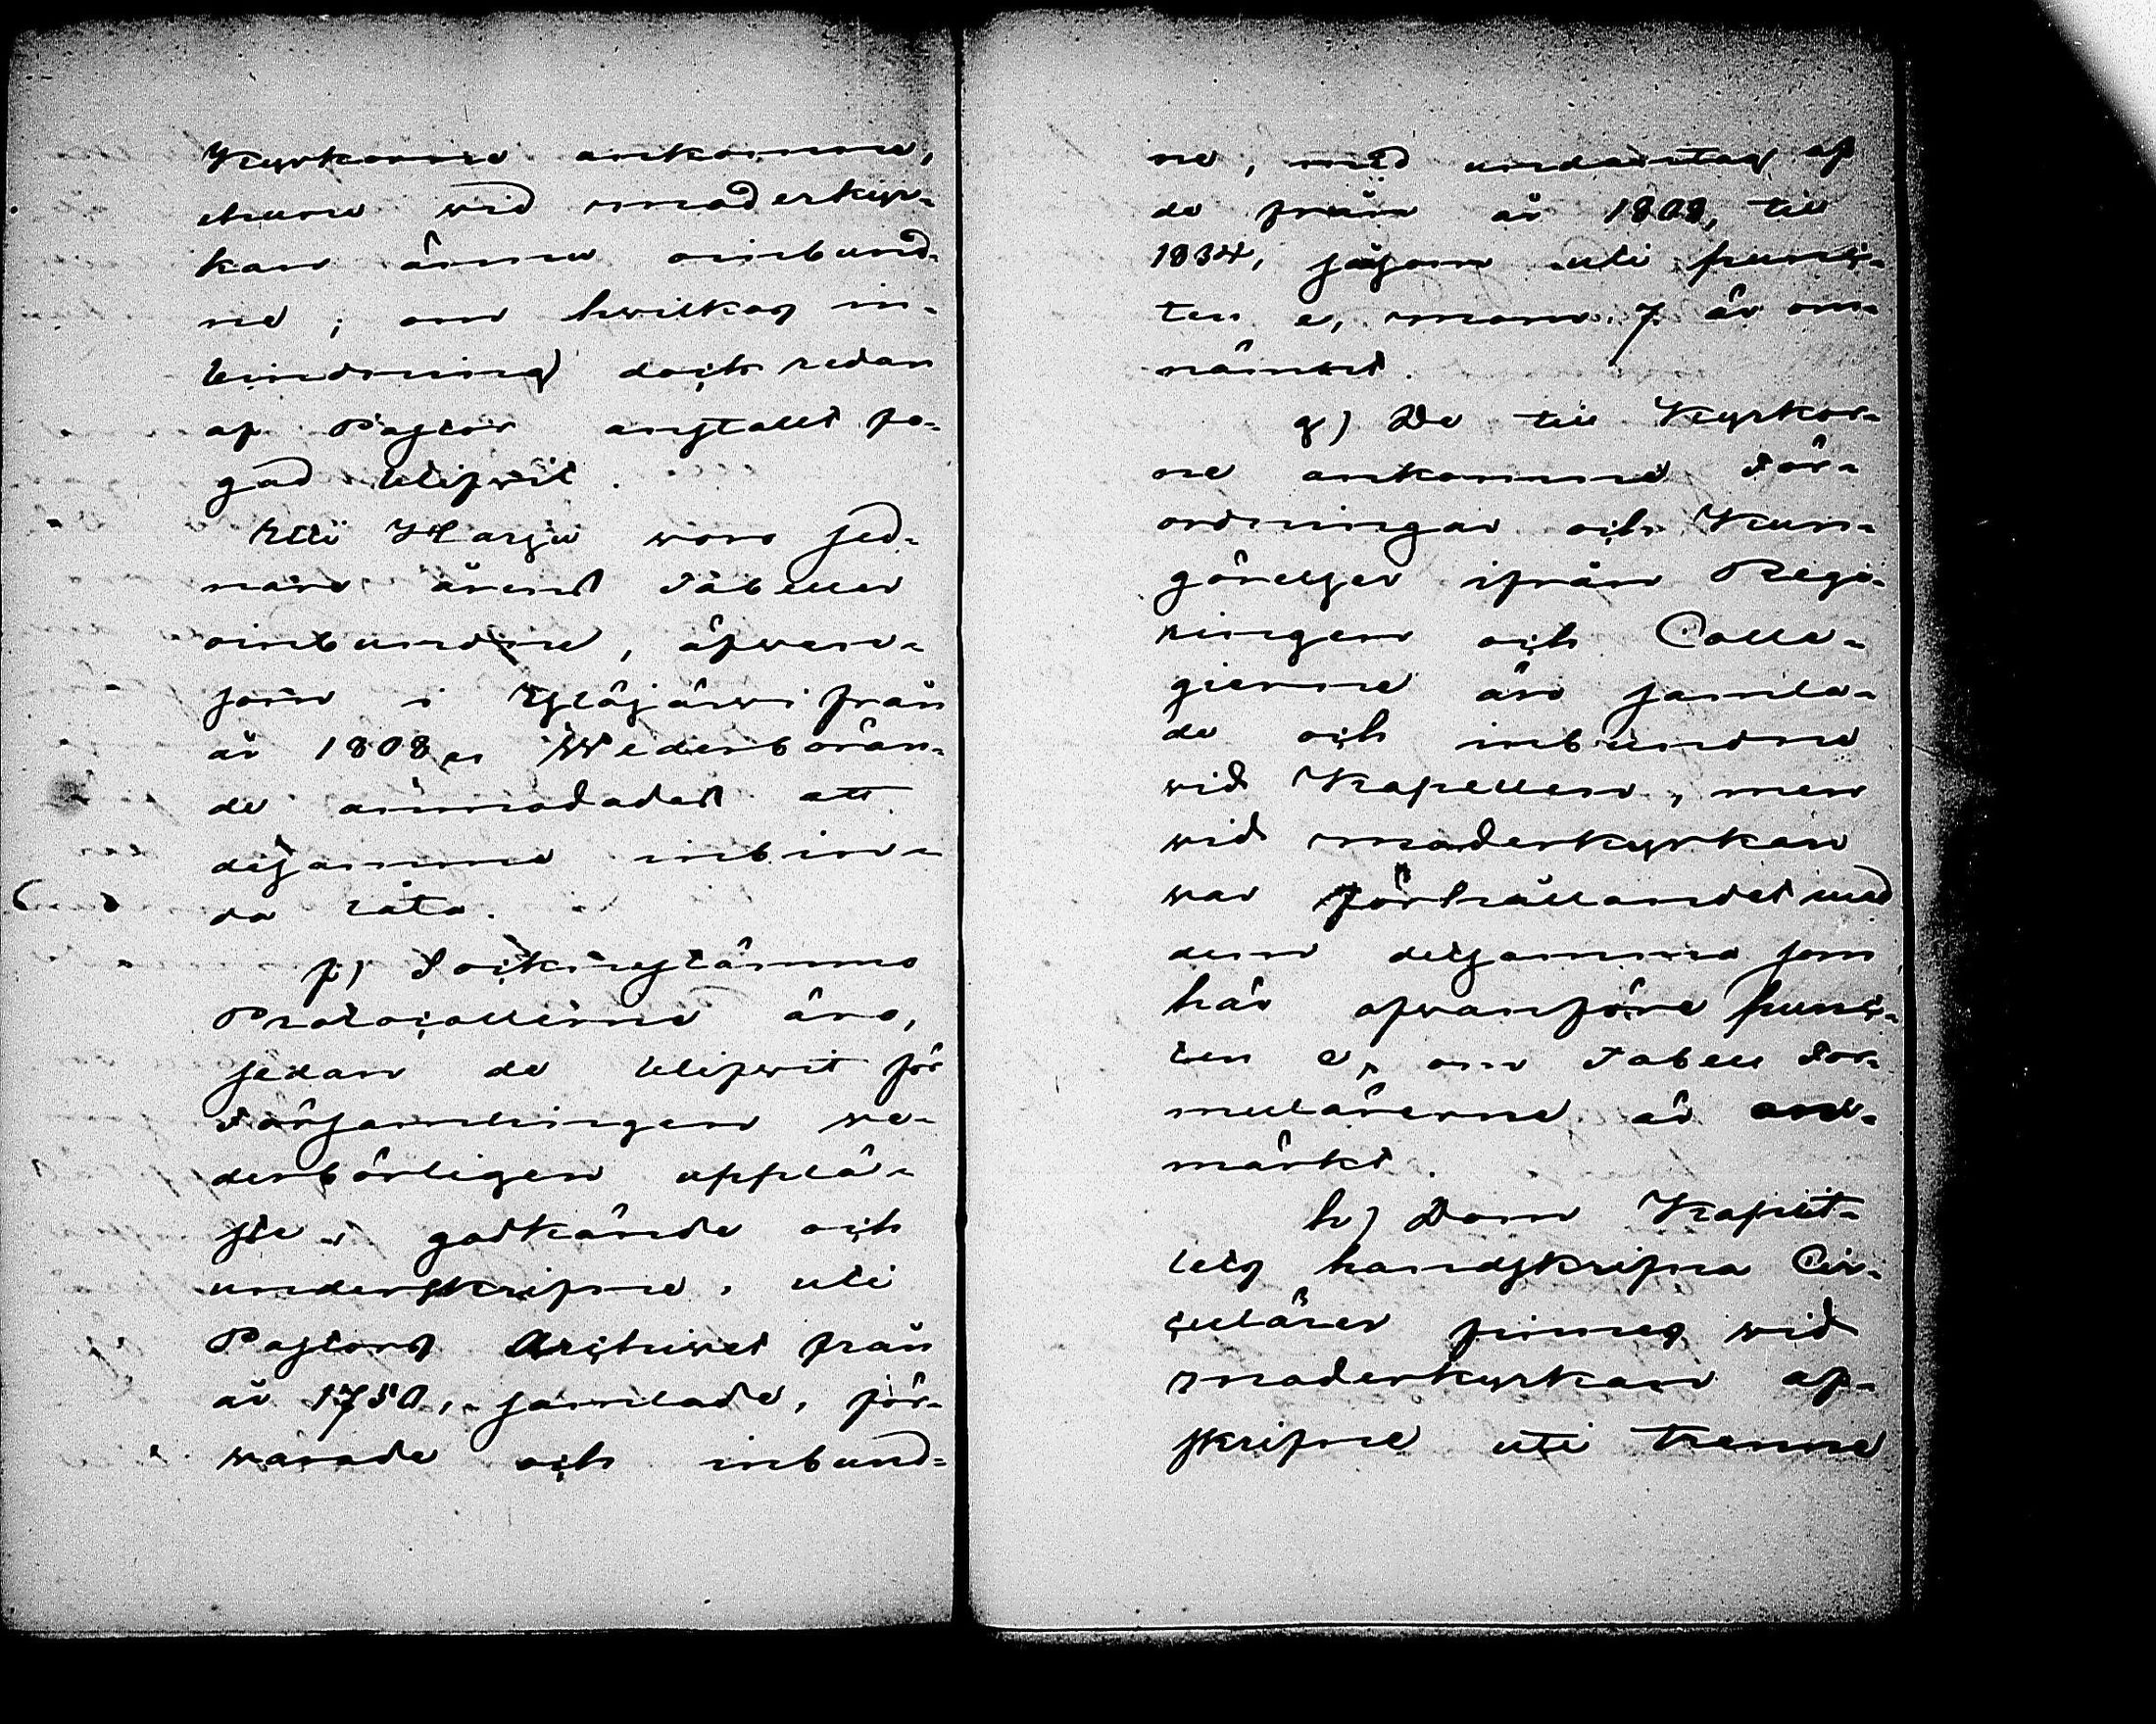 Kyrkorne ankomne,
ehuru wid moderkyr-
kan ännu oinbund-
ne; om hwilkas in-
bindning doch redan
af Pastor anstalt fo-
gad blifwit.
Uti Harju woro sed-
nare ärens Tabeller
oinbundne, äfwen-
som i Ylöjärwi från
år 1808, Wederböran-
de anmodades att
desamme inbin-
da låta.
f) Socknestämmo
Protocollerne äro,
sedan de blifwit för
Församlingen we-
derbörligen upplä-
ste, godkände och
underskrifne, uti
Pastors Archivet från
år 1750, samlade, för-
warade och inbund-
ne, med undantag af
de från år 1808, till
1834, såsom uti punc-
ten e, mom. 7 är om-
nämnt.
g) De till Kyrkor-
ne ankomne För-
ordningar och Kun-
görelser ifrån Rege-
ringen och Colle-
gierne äro samla-
de och inbundne
wid Kapellen, men
wid moderkyrkan
war förhållandet med
dem detsamma som
här ofwanföre punc-
ten e, om Tabell For-
mulärerne är an-
märkt.
h) Dom Kapit-
lets handskrifna Cir-
culärer finnes wid
moderkyrkan af-
skrifne uti trenne